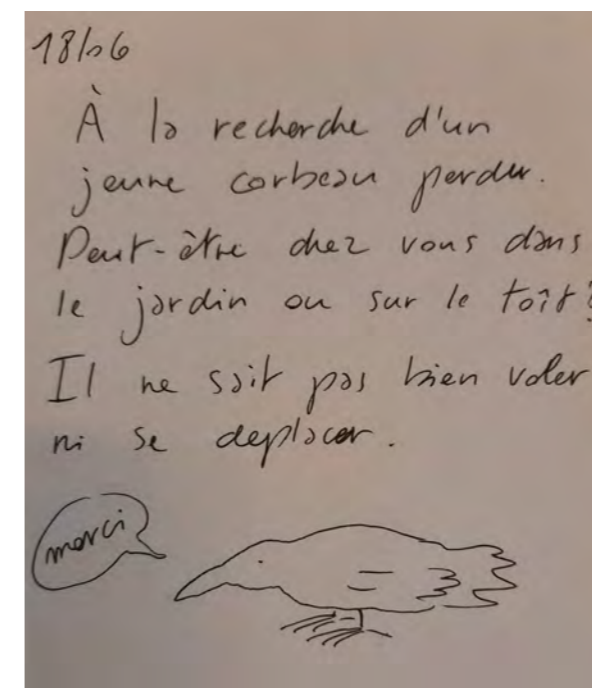 18/06
À la recherche d'un
jeune corbeau perdu.
Peut-être chez vous dans
le jardin ou sur le toît?
Il ne sait pas bien voler
ni se deplacer.
merci